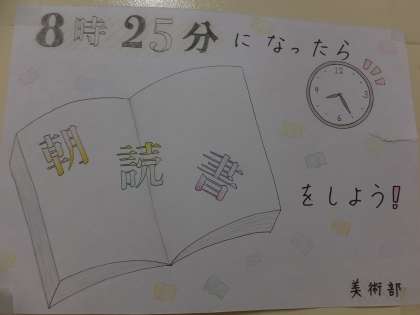 8時25分になったら
12
3
6
9
朝読書
をしよう!
美術部